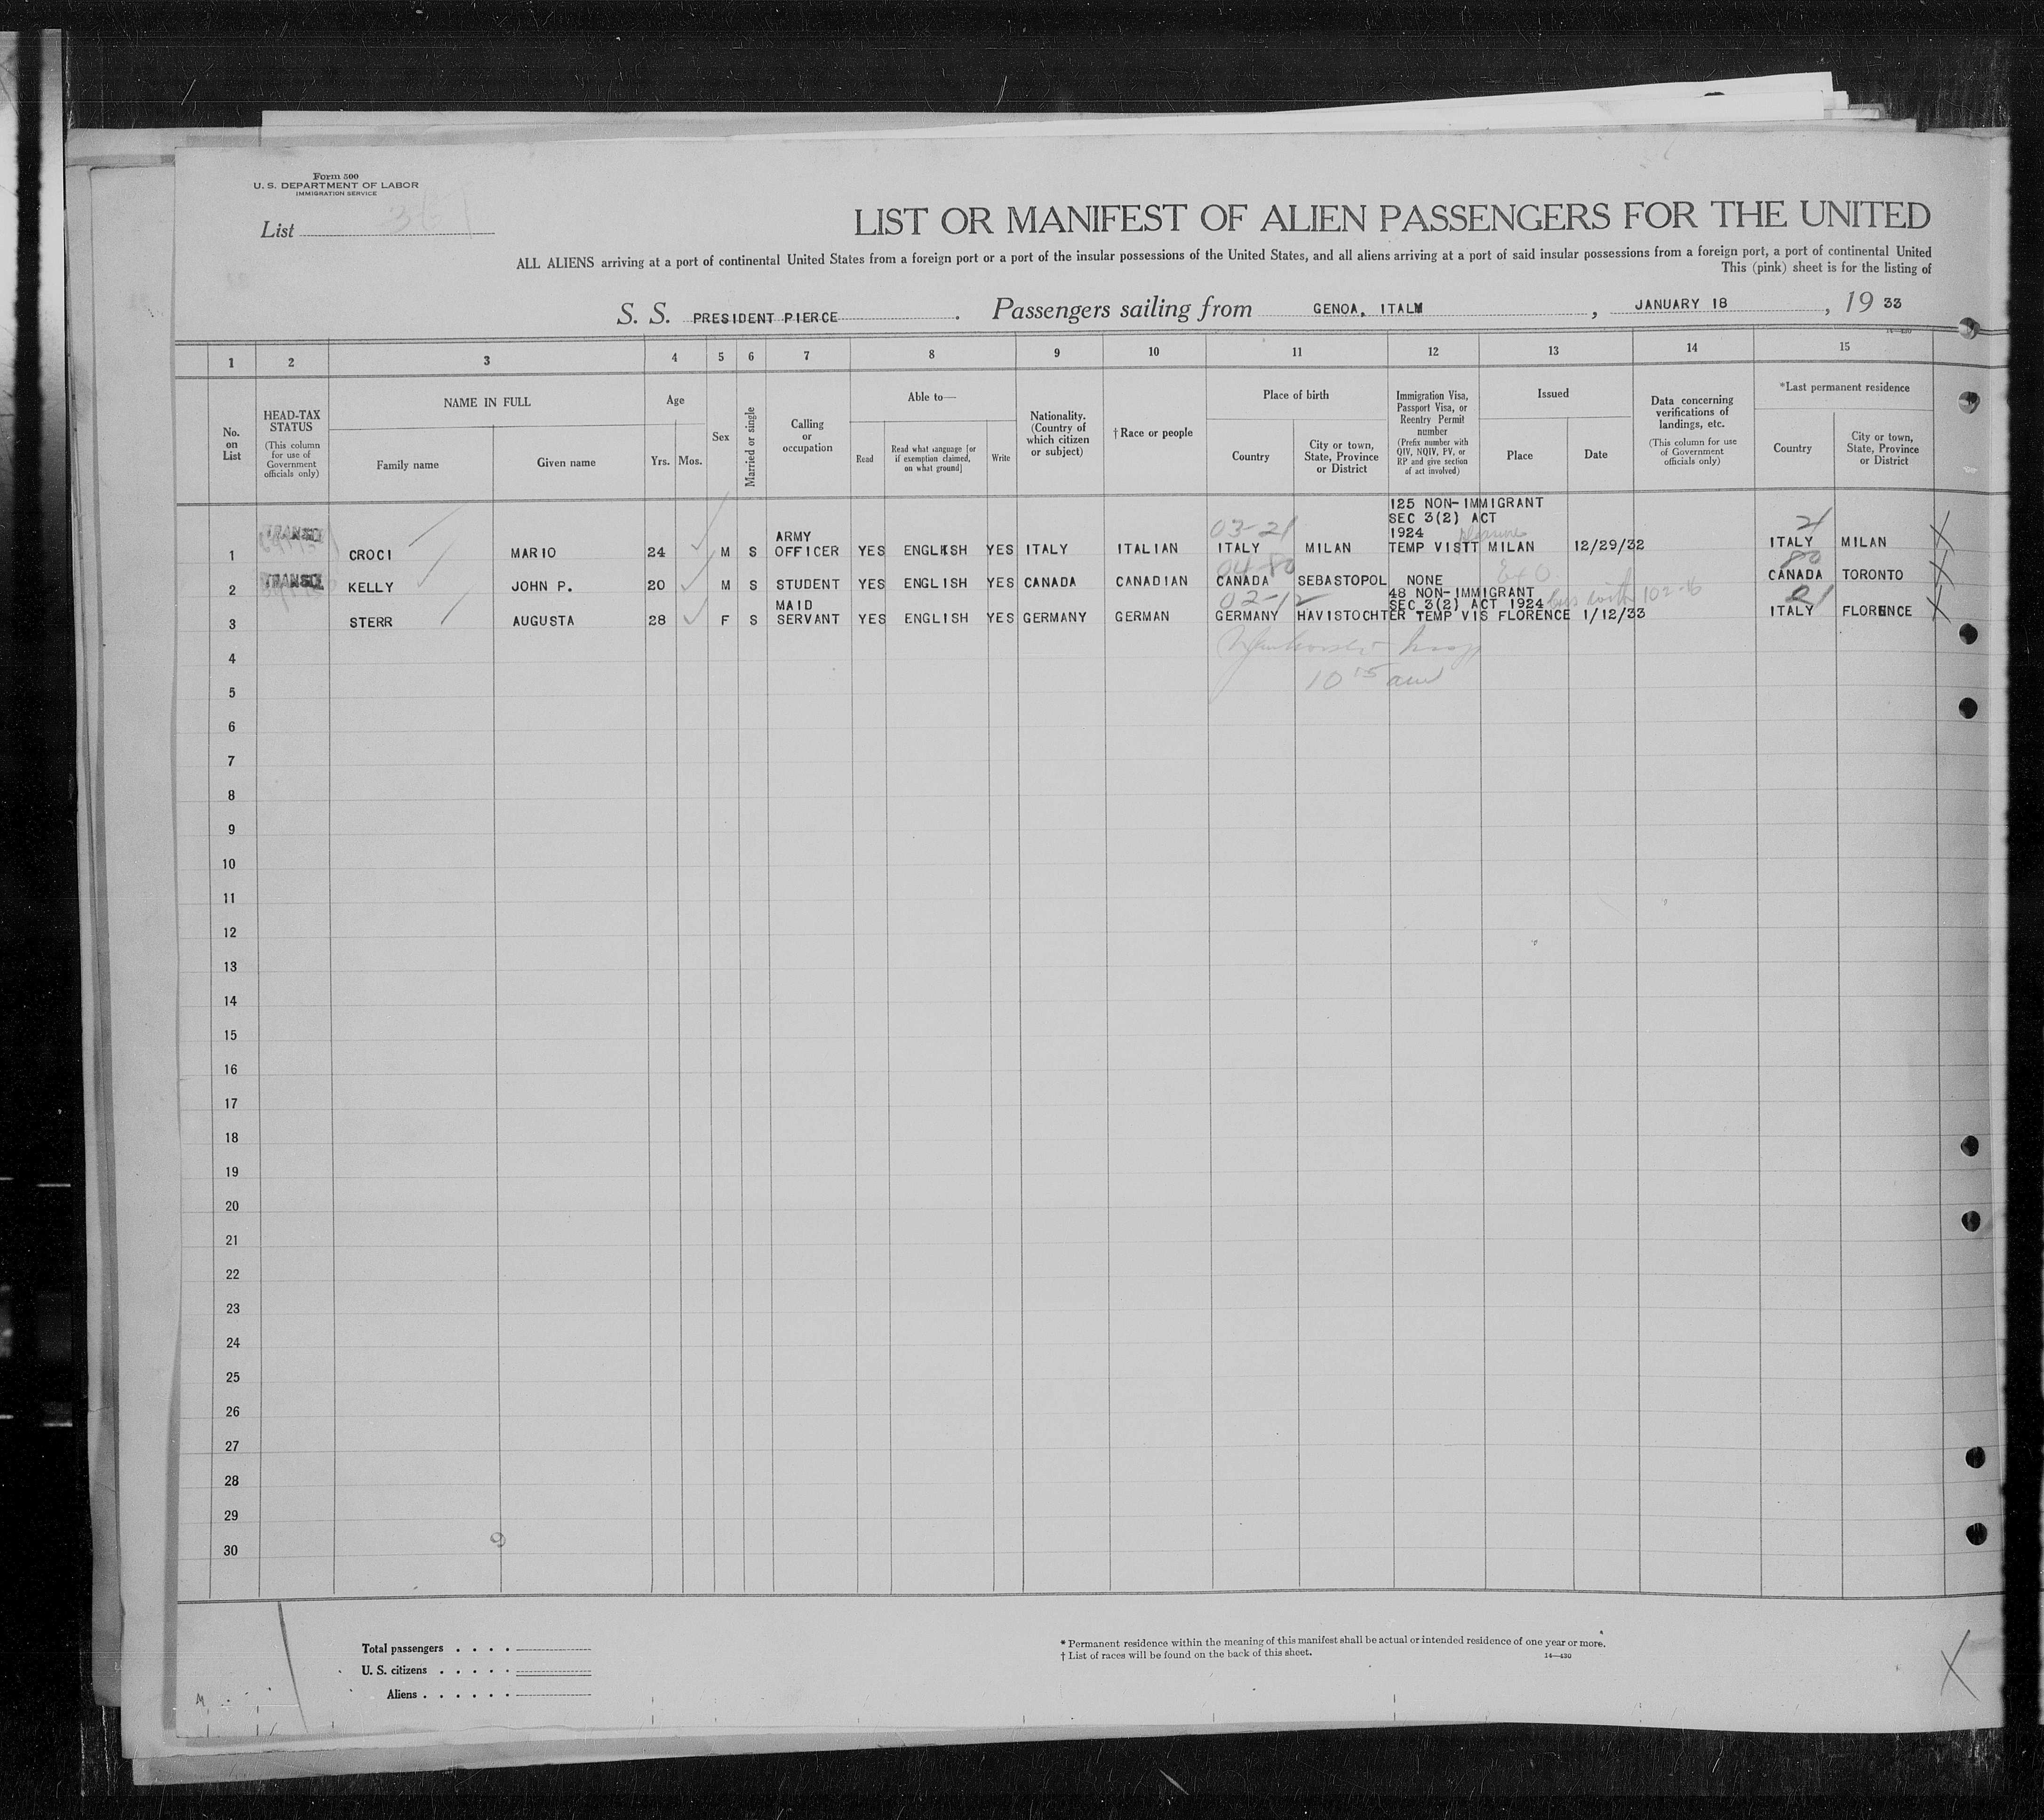 Form 500
U. S. DEPARTMENT OF LABOR
IMMIGRATION SERVICE
List 36
LIST OR MANIFEST OF ALIEN PASSENGERS FOR THE UNITED
ALL ALIENS arriving at a port of continental United States from a foreign port or a port of the insular possessions of the United States, and all aliens arriving at a port of said insular possessions from a foreign port, a port of continental United
This (pink) sheet is for the listing of
S. S. PRESIDENT PIERCE . Passengers sailing from GENOA, ITALM , JANUARY 18 , 19 33
14—430
1 2 3 4 5 6 7 8 9 10 11 12 13 14 15
No. on List
HEAD-TAX STATUS
(This column for use of Government officials only)
NAME IN FULL
Family name
Given name
Age
Yrs. Mos.
Sex
Married or single
Calling or occupation
Able to—
Read
Read what language [or if exemption claimed, on what ground]
Write
Nationality. (Country of which citizen or subject)
† Race or people
Place of birth
Country
City or town, State, Province or District
Immigration Visa, Passport Visa, or Reentry Permit number
(Prefix number with QIV, NQIV, PV, or RP and give section of act involved)
Issued
Place
Date
Data concerning verifications of landings, etc.
(This column for use of Government officials only)
*Last permanent residence
Country
City or town, State, Province or District
125 NON-IMMIGRANT
SEC 3(2) ACT
03-21 1924 pleasure 21
TRANSIT
1 CROCI MARIO 24 M S ARMY OFFICER YES ENGLISH YES ITALY ITALIAN ITALY MILAN TEMP VISTT MILAN 12/29/32 ITALY MILAN
04-80 80
TRANSIT
2 KELLY JOHN P. 20 M S STUDENT YES ENGLISH YES CANADA CANADIAN CANADA SEBASTOPOL NONE CANADA TORONTO
48 NON-IMMIGRANT
02-12 SEC 3(2) ACT 1924 with 102-6 21
3 STERR AUGUSTA 28 F S MAID SERVANT YES ENGLISH YES GERMANY GERMAN GERMANY HAVISTOCHTER TEMP VIS FLORENCE 1/12/33 ITALY FLORENCE
4
10 15 am
5
6
7
8
9
10
11
12
13
14
15
16
17
18
19
20
21
22
23
24
25
26
27
28
29
30
9
Total passengers . . . .
U. S. citizens . . . . .
Aliens . . . . . .
* Permanent residence within the meaning of this manifest shall be actual or intended residence of one year or more.
† List of races will be found on the back of this sheet.
14—430